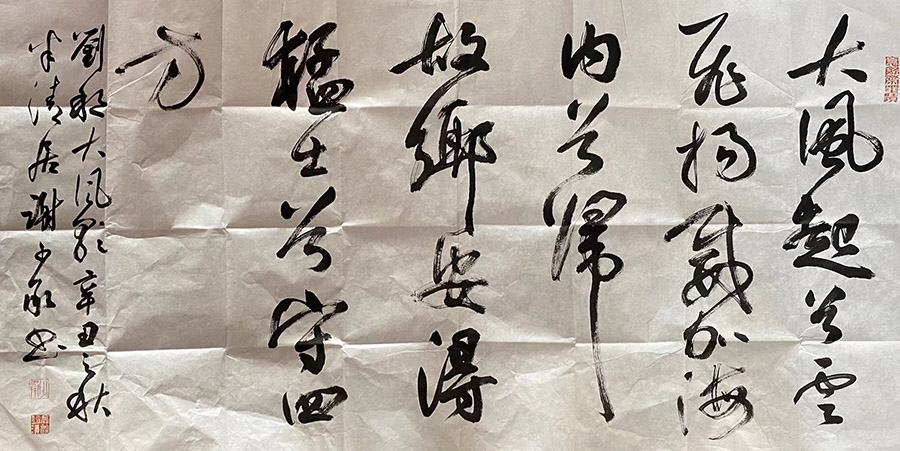 大風起兮雲
飛揚威加海
内兮歸
故鄉安得
猛士兮守四
方
劉邦大风歌辛丑之秋
半清居谢少承书